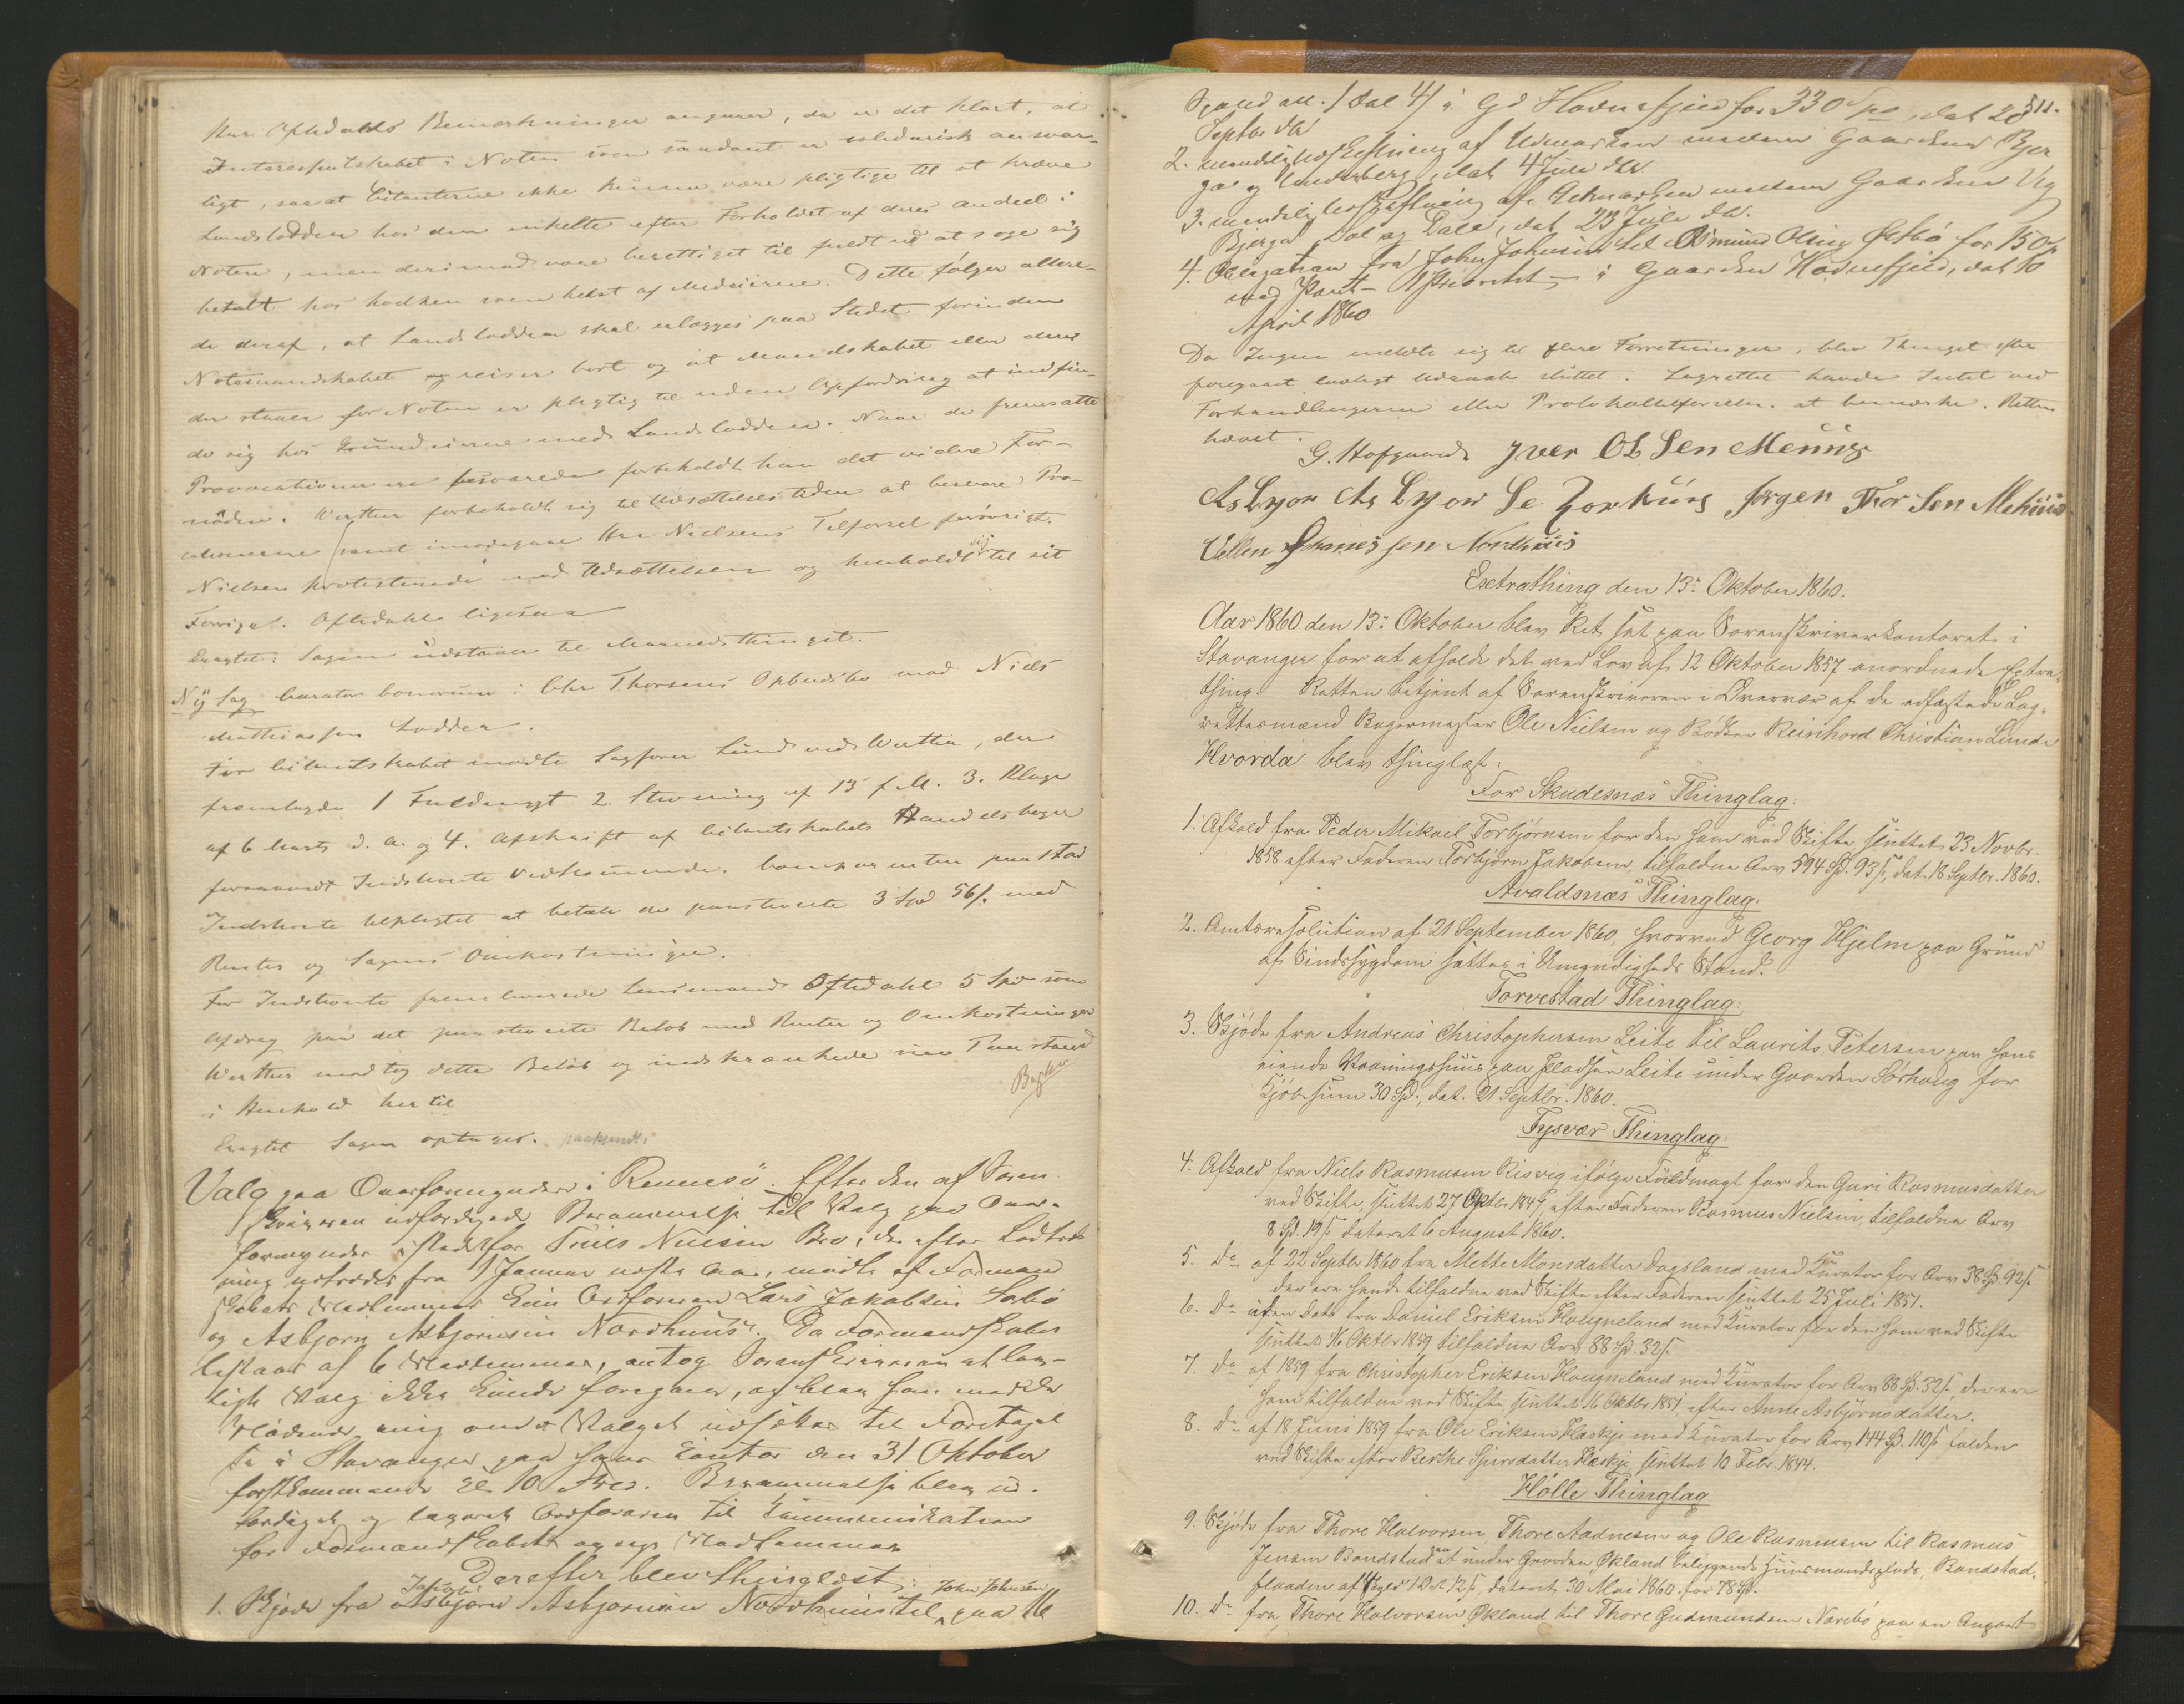 Hr. Oftedahls Bemærkninger angaaer, da er det klart, at
Interessentskabet i Noten som saadant er solidarisk ansvar-
ligt, saa at Citanterne ikke kunne være pligtige til at kræve
Landslodden hos den enkelte efter Forholdet af deres Andeel i
Noten, men derimod være berettiget til fuldt ud at søge sig
betalt hos hvilken som helst af Medeierne. Dette følger allere-
de deraf, at Landslodden skal erlægges paa Stedet forinden
Notemandskabet reiser bort og at Mandskabet eller den
der staaer for Noten er pligtig til uden Opfordring at indfin-
de sig hos Grundeierne med Landslodden. Naar de fremsatte
Provocationer ere besvarede forbeholdt han det videre For-
nødne. Werther forbeholdt sig til Udsættelsestiden at besvare Pro-
vocationerne samt imødegaae Hr. Nielsens Tilførsel forøvrigt.
Nielsen protesterede mod Udsættelsen og henholdt sig til sit
Forrige. Oftedahl ligesaa
Eragtet: Sagen udstaaer til Maanedsthinget.
Ny Sag Curator bonorum i Chr. Thorsens Opbudsbo mod Niels
Mathiassen Lodden.
For Citantskabet mødte Sagfører Lund ved Werther, der
fremlagde 1 Fuldmagt 2. Stevning af 13 f. M. 3. Klage
af 6 Marts d. A. og 4. Afskrift af Citantskabets Handelsbøger
forsaavidt Indstevnte vedkommende. Comparenten paastod
Indstevnte tilpligtet at betale de paastevnte 3 Spd 56 s. med
Renter og Sagens Omkostninger.
For Indstevnte fremleverede Lensmand Oftedahl 5 Spd som
Afdrag paa det paastevnte Beløb med Renter og Omkostninger
Werther modtog dette Beløb og indskrænkede sin Paastand
i Henhold hertil
Eragtet Sagen optages.
Valg paa Overformynder i Rennesø. Efter den af Soren
skriveren udfærdigede Berammelse til Valg paa Over-
formynder istedetfor Truls Nielsen Bru, der efter Lodtræk
ning udtræder fra 1 Januar næste Aar, mødte af Formand
skabets Medlemmer kun Ordføreren Lars Jakobsen Sørbø
og Asbjørn Asbjørnsen Nordhuus. Da Formandskabet
bestaar af 6 Medlemmer, antog Sorenskriveren at lov-
ligt Valg ikke kunde foregaaes, og blev han med de
Mødende enig om at Valget udsættes til Foretagel
se i Stavanger paa hans Kontor den 31 Oktober
førstkommende Kl. 10 Fmd. Berammelse blev ud-
færdiget og leveret Ordføreren til Kommunikation
for Formandskabets øvrige Medlemmer
Derefter blev thinglæst:
1. Skjøde fra Jakob Asbjørn Asbjørnsen Nordhuus til John Johnsen paa 1/6
511.
i Gd Hodnefjeld for 330 Spd, dat 28
Septbr d. A.
2. mindelig Udskiftning af Udmarken mellem Gaardene Bjer
ga og Underberge, dat 4 Juli d. A.
3. mindelig Udskiftning af Udmarken mellem Gaardene Vig
Bjerga, Dal og Dale, dat 23 Juli d. A.
4. Obligation fra John Johnsen til Osmund Olsen Østbø for 150
med Pant 1 Prioritet i Gaarden Hodnefjeld, dat 10
April 1860
Da Ingen meldte sig til flere Forretninger, blev Thinget efter
foregaaet lovligt Udraab sluttet. Lagrettet havde Intet ved
Forhandlingerne eller Protokoltilførslen at bemærke. Retten
hævet.
G. Hofgaard Iver Olsen Meling
Aslyor Aslyorse Norhuus Jørgen Thorsen Mehuus
Villem Johannessen Nordhuus
Extrathing den 13de Oktober 1860.
Aar 1860 den 13de Oktober blev Ret sat paa Sorenskriverkontoret i
Stavanger for at afholde det ved Lov af 12 Oktober 1857 anordnede Extra-
thing. Retten betjent af Sorenskriveren i Overvær af de edfæstede Lag-
rettesmænd Bagermester Ole Nielsen og Bødker Reinhord Christian Lunde
Hvorda blev thinglæst:
For Skudesnæs Thinglag:
1. Afkald fra Peder Mikael Torbjørnsen for den ham ved Skifte sluttet 23 Novbr.
1858 efter Faderen Torbjørn Jakobsen, tilfaldne Arv 594 Spd. 93 s, dat. 18 Septbr. 1860.
Avaldsnæs Thinglag:
2. Amtsresolution af 21 September 1860, hvorved Georg Hjelm paa Grund
af Sindssygdom sættes i Umyndigheds Stand.
Torvestad Thinglag:
3. Skjøde fra Andreas Christophersen Leite til Laurits Petersen paa hans
eiende Vaaningshuus paa Pladsen Leite under Gaarden Sørhaug for
Kjøbesum 30 Spd., dat. 21 Septbr. 1860.
Tysvær Thinglag:
4. Afkald fra Niels Rasmusen Risvig ifølge Fuldmagt for den Guri Rasmusdatter
ved Skifte, sluttet 27 Oktbr 1847, efter Faderen Rasmus Nielsen, tilfaldne Arv
8 Spd. 19 s dateret 6 August 1860.
5. Do af 22 Septbr 1860 fra Mette Monsdatter Dagsland med Kurator for Arv 38 Spd. 92 s
der ere hende tilfaldne ved Skifte efter Faderen sluttet 25 Juli 1851.
6. Do uden Dato fra Daniel Eriksen Hougneland med Kurator for den ham ved Skifte
sluttet 16 Oktbr 1859 tilfaldne Arv 88 Spd. 32 s.
7. Do af 1859 fra Christopher Eriksen Hougneland med Kurator for Arv 88 Spd. 32 s, der ere
ham tilfaldne ved Skifte, sluttet 16 Oktbr 1851, efter Anne Asbjørnsdatter.
8. Do af 18 Juni 1859 fra Ole Eriksen Hæskje med Kurator for Arv 144 Spd. 110 s falden
ved Skifte efter Berthe Sjursdatter Hæskje, sluttet 10 Febr. 1844.
Hølle Thinglag
9. Skjøde fra Thore Halvorsen, Thore Aadnesen og Ole Rasmusen til Rasmus
Jensen Bandstad paa et under Gaarden Økland beliggende Huusmandsplads, Bandstad,
af Skyld 1 Ort 12 s, dateret 30 Mai 1860 for 78 Spd.
10. Do fra Thore Halvorsen Økland til Thore Gudmundsen Narebø paa en Anpart